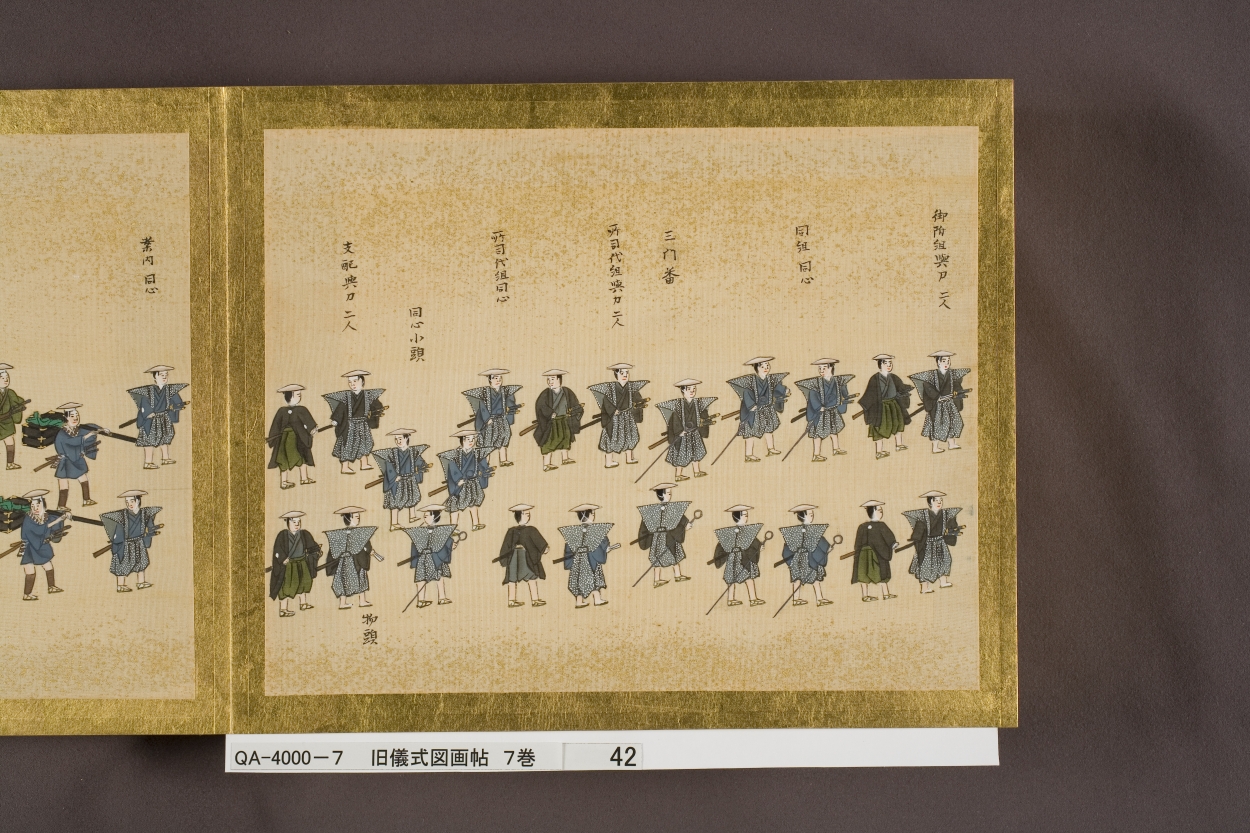 御附組與力 二人
同組 同心
三門番
所司代組與力 二人
所司代組同心
同心小頭
支配與力 二人
物頭
案内 同心
QA-4000-7 旧儀式図画帖 7巻 42